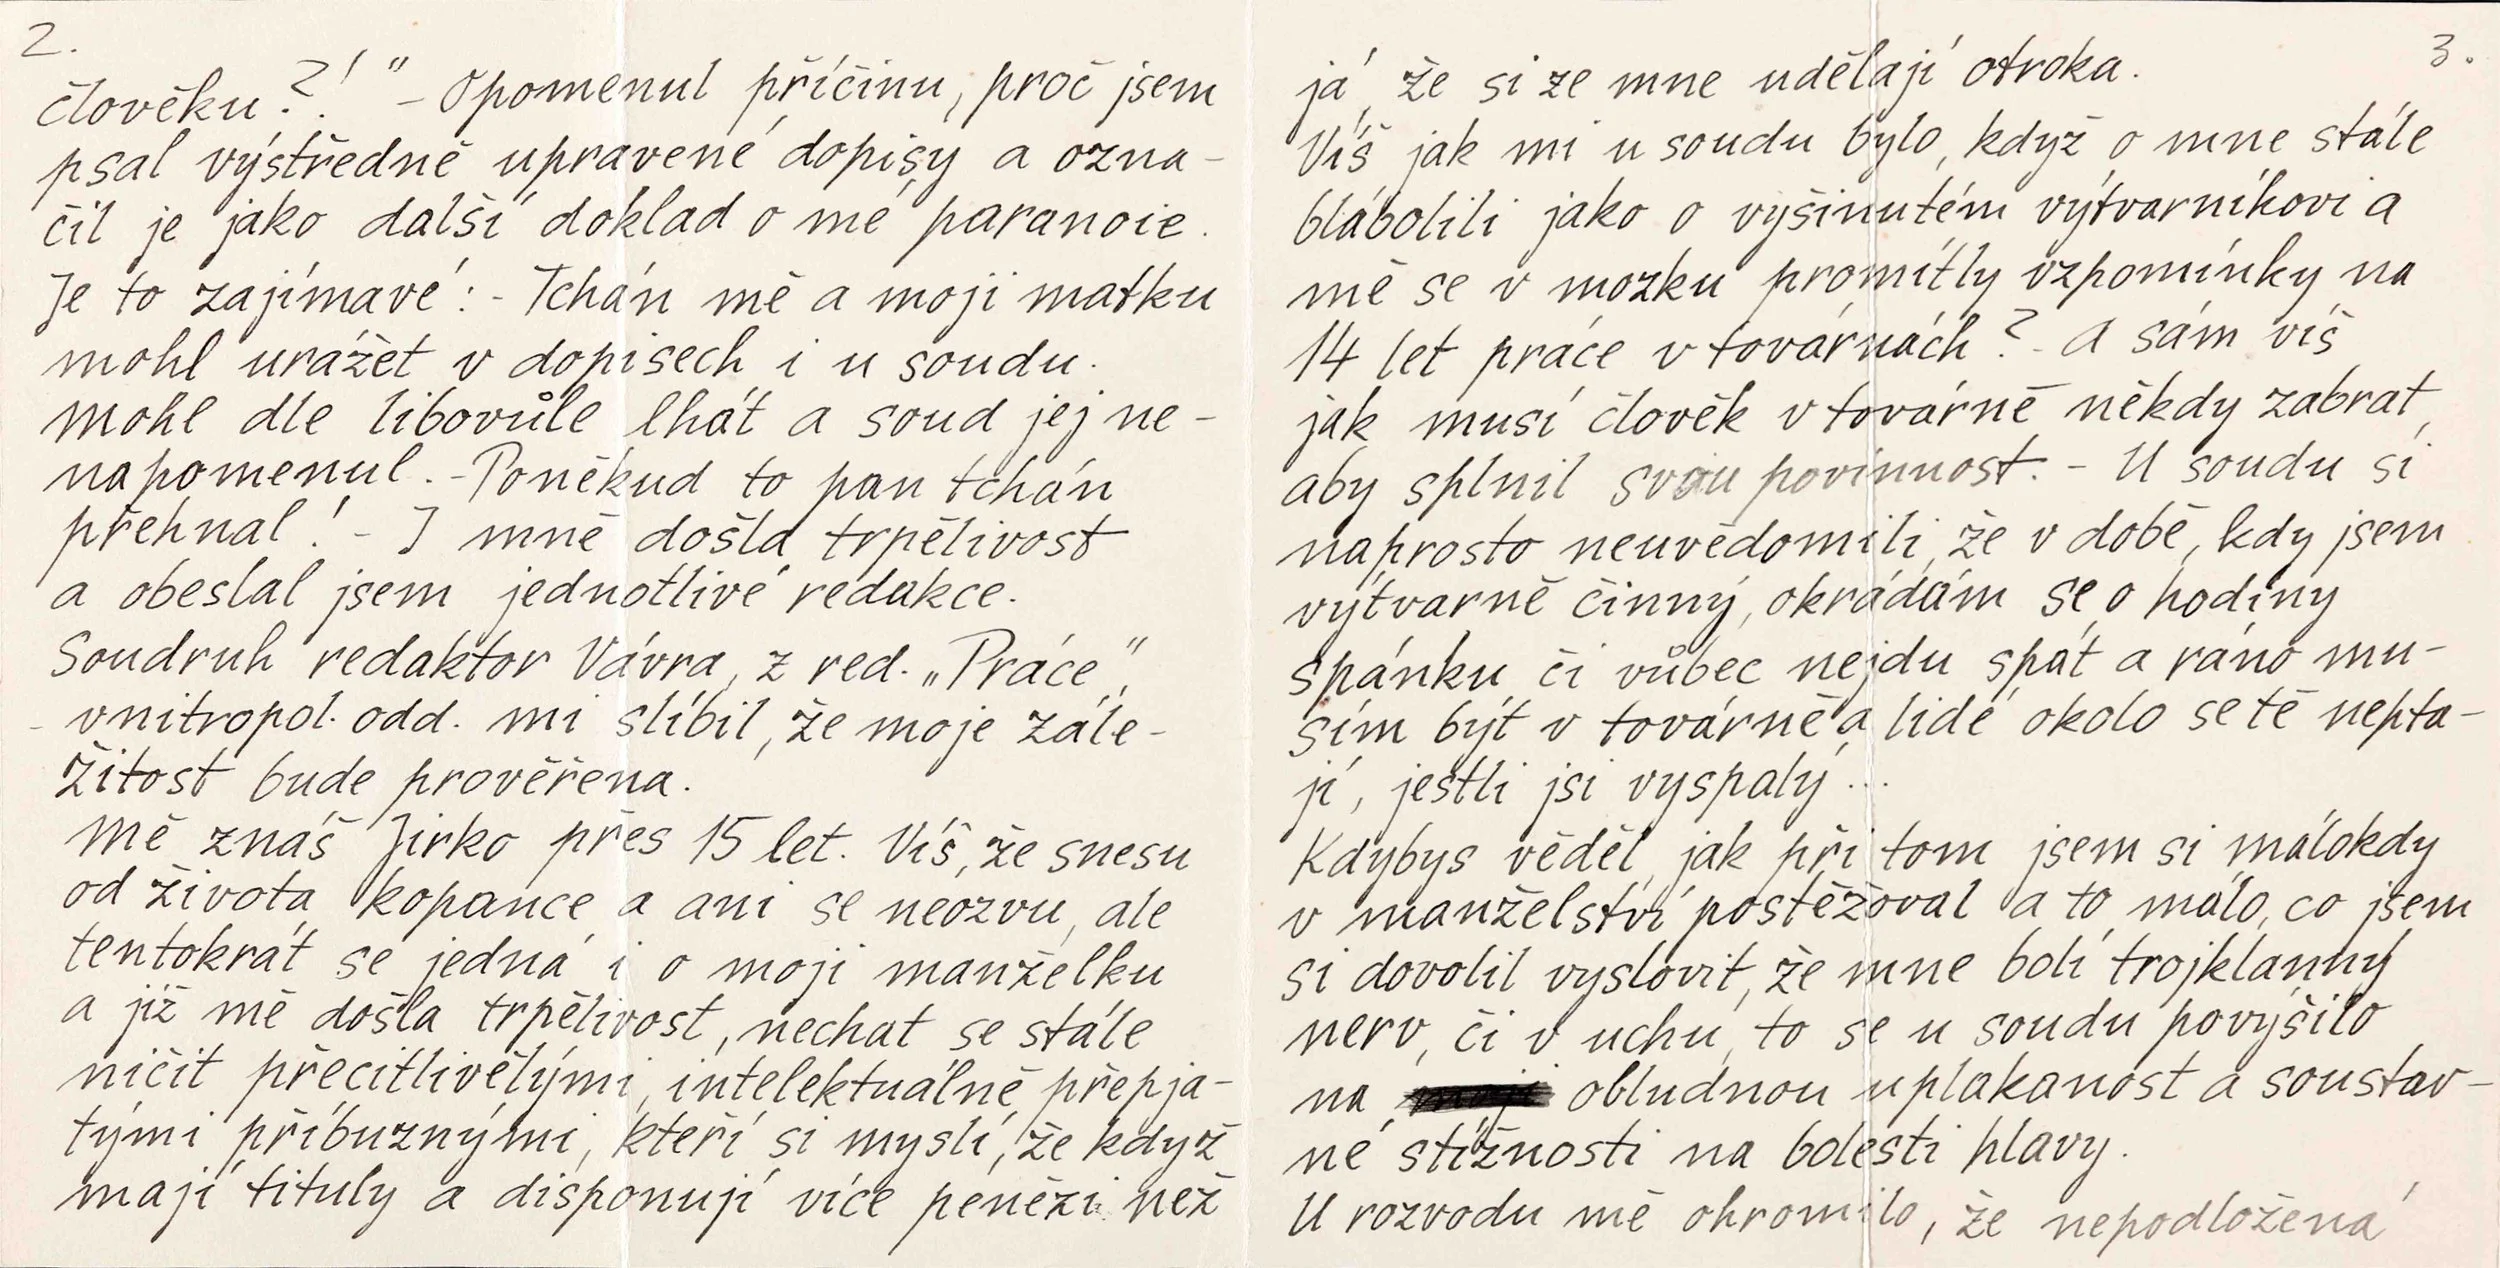 2.
člověku?!" – Opomenul příčinu, proč jsem
psal výstředně upravené dopisy a ozna-
čil je jako další doklad o mé paranoie.
Je to zajímavé: - Tchán mě a moji matku
mohl urážet v dopisech i u soudu.
Mohl dle libovůle lhát a soud jej ne-
napomenul. - Poněkud to pan tchán
přehnal! - I mně došla trpělivost
a obeslal jsem jednotlivé redakce.
Soudruh redaktor Vávra, z red. „Práce",
- vnitropol. odd. mi slíbil, že moje zále-
žitost bude prověřena.
Mě znáš Jirko přes 15 let. Víš, že snesu
od života kopance a ani se neozvu, ale
tentokrát se jedná i o moji manželku
a již mě došla trpělivost, nechat se stále
ničit přecitlivělými, intelektuálně přepja-
tými příbuznými, kteří si myslí, že když
mají tituly a disponují více penězi než
3.
já, že si ze mne udělají otroka.
Víš jak mi u soudu bylo, když o mne stále
blábolili jako o vyšinutém výtvarníkovi a
mě se v mozku promítly vzpomínky na
14 let práce v továrnách? - A sám víš
jak musí člověk v továrně někdy zabrat,
aby splnil svou povinnost. - U soudu si
naprosto neuvědomili, že v době, kdy jsem
výtvarně činný, okrádám se o hodiny
spánku či vůbec nejdu spát a ráno mu-
sím být v továrně a lidé okolo se tě nepta-
jí, jestli jsi vyspalý...
Kdybys věděl, jak při tom jsem si málokdy
v manželství postěžoval a to málo, co jsem
si dovolil vyslovit, že mne bolí trojklanný
nerv, či v uchu, to se u soudu povýšilo
na obludnou uplakanost a soustav-
né stížnosti na bolesti hlavy.
U rozvodu mě ohromilo, že nepodložená